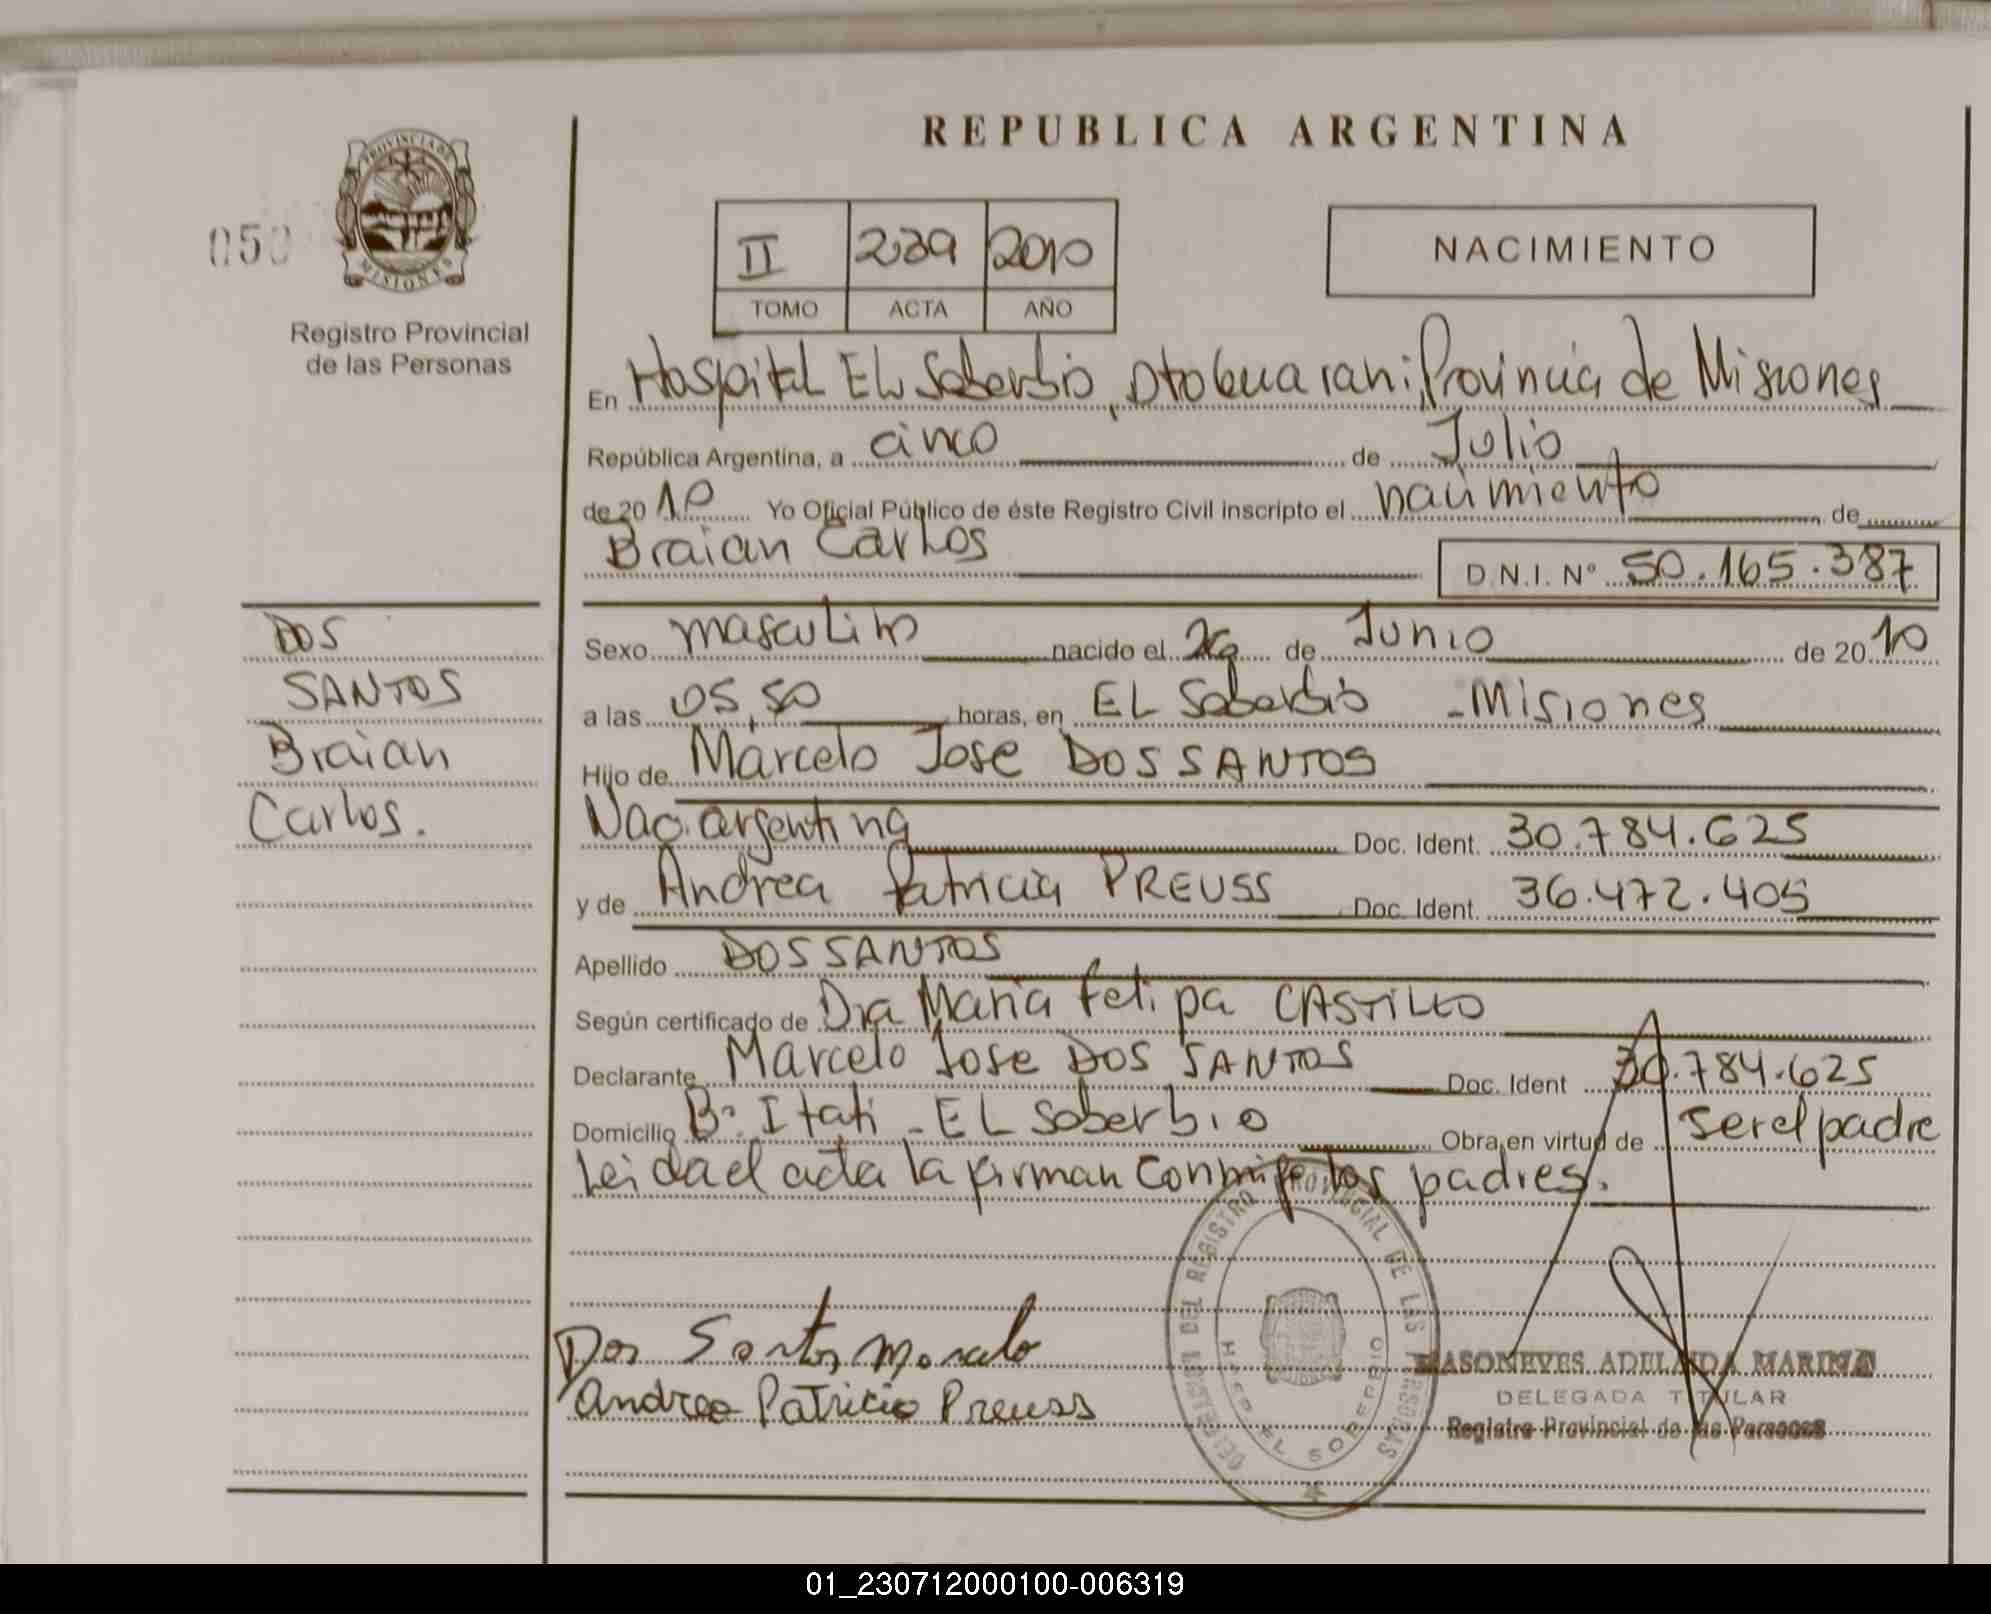 REPUBLICA ARGENTINA
PROVINCIA DE MISIONES
Registro Provincial
de las Personas
II 239 2010
TOMO ACTA AÑO
NACIMIENTO
En Hospital EL Soberbio, Dto Guarani; Provincia de Misiones
República Argentina, a cinco de Julio
de 2010 Yo Oficial Público de éste Registro Civil inscripto el nacimiento de
Braian Carlos D.N.I. Nº 50.165.387
DOS
SANTOS
Braian
Carlos.
Sexo masculino nacido el de Junio de 2010
a las 05,50 horas, en EL Soberbio - Misiones
Hijo de Marcelo Jose DOS SANTOS
Nac. argentina Doc. Ident. 30.784.625
y de Andrea Patricia PREUSS Doc. Ident. 36.472.405
Apellido DOS SANTOS
Según certificado de Dra Maria Felipa CASTILLO
Declarante Marcelo Jose DOS SANTOS Doc. Ident 30.784.625
Domicilio Bº Itati - EL Soberbio Obra en virtud de ser el padre
Leida el acta la firman conmigo los padres.
Dos Santos Marcelo
Andrea Patricia Preuss
DEL REGISTRO PROVINCIAL DE LAS PERSONAS
EL SOBERBIO
MASONEVES ADELAIDA MARINA
DELEGADA TITULAR
Registro Provincial de las Personas
01_230712000100-006319